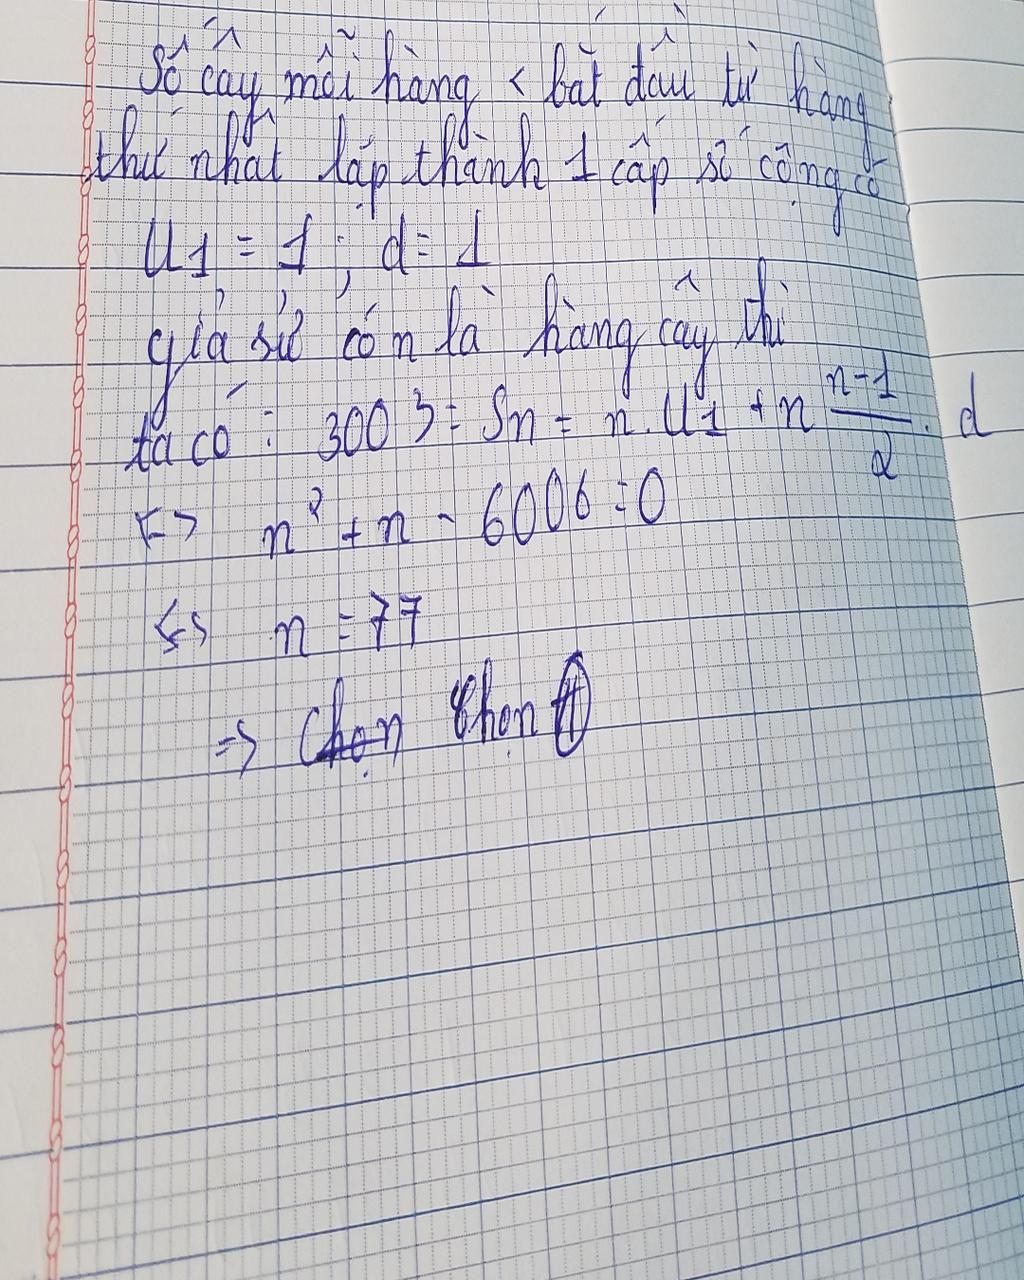 Số cây mỗi hàng < bắt đầu từ hàng
thứ nhất lập thành 1 cấp số cộng có
U1 = 1 ; d = 1
giả sử có n là hàng cây thì
ta có : 3003 = Sn = n.U1 + n n-1/2 . d
<=> n² + n - 6006 = 0
<=> n = 77
=> Chọn Chọn A